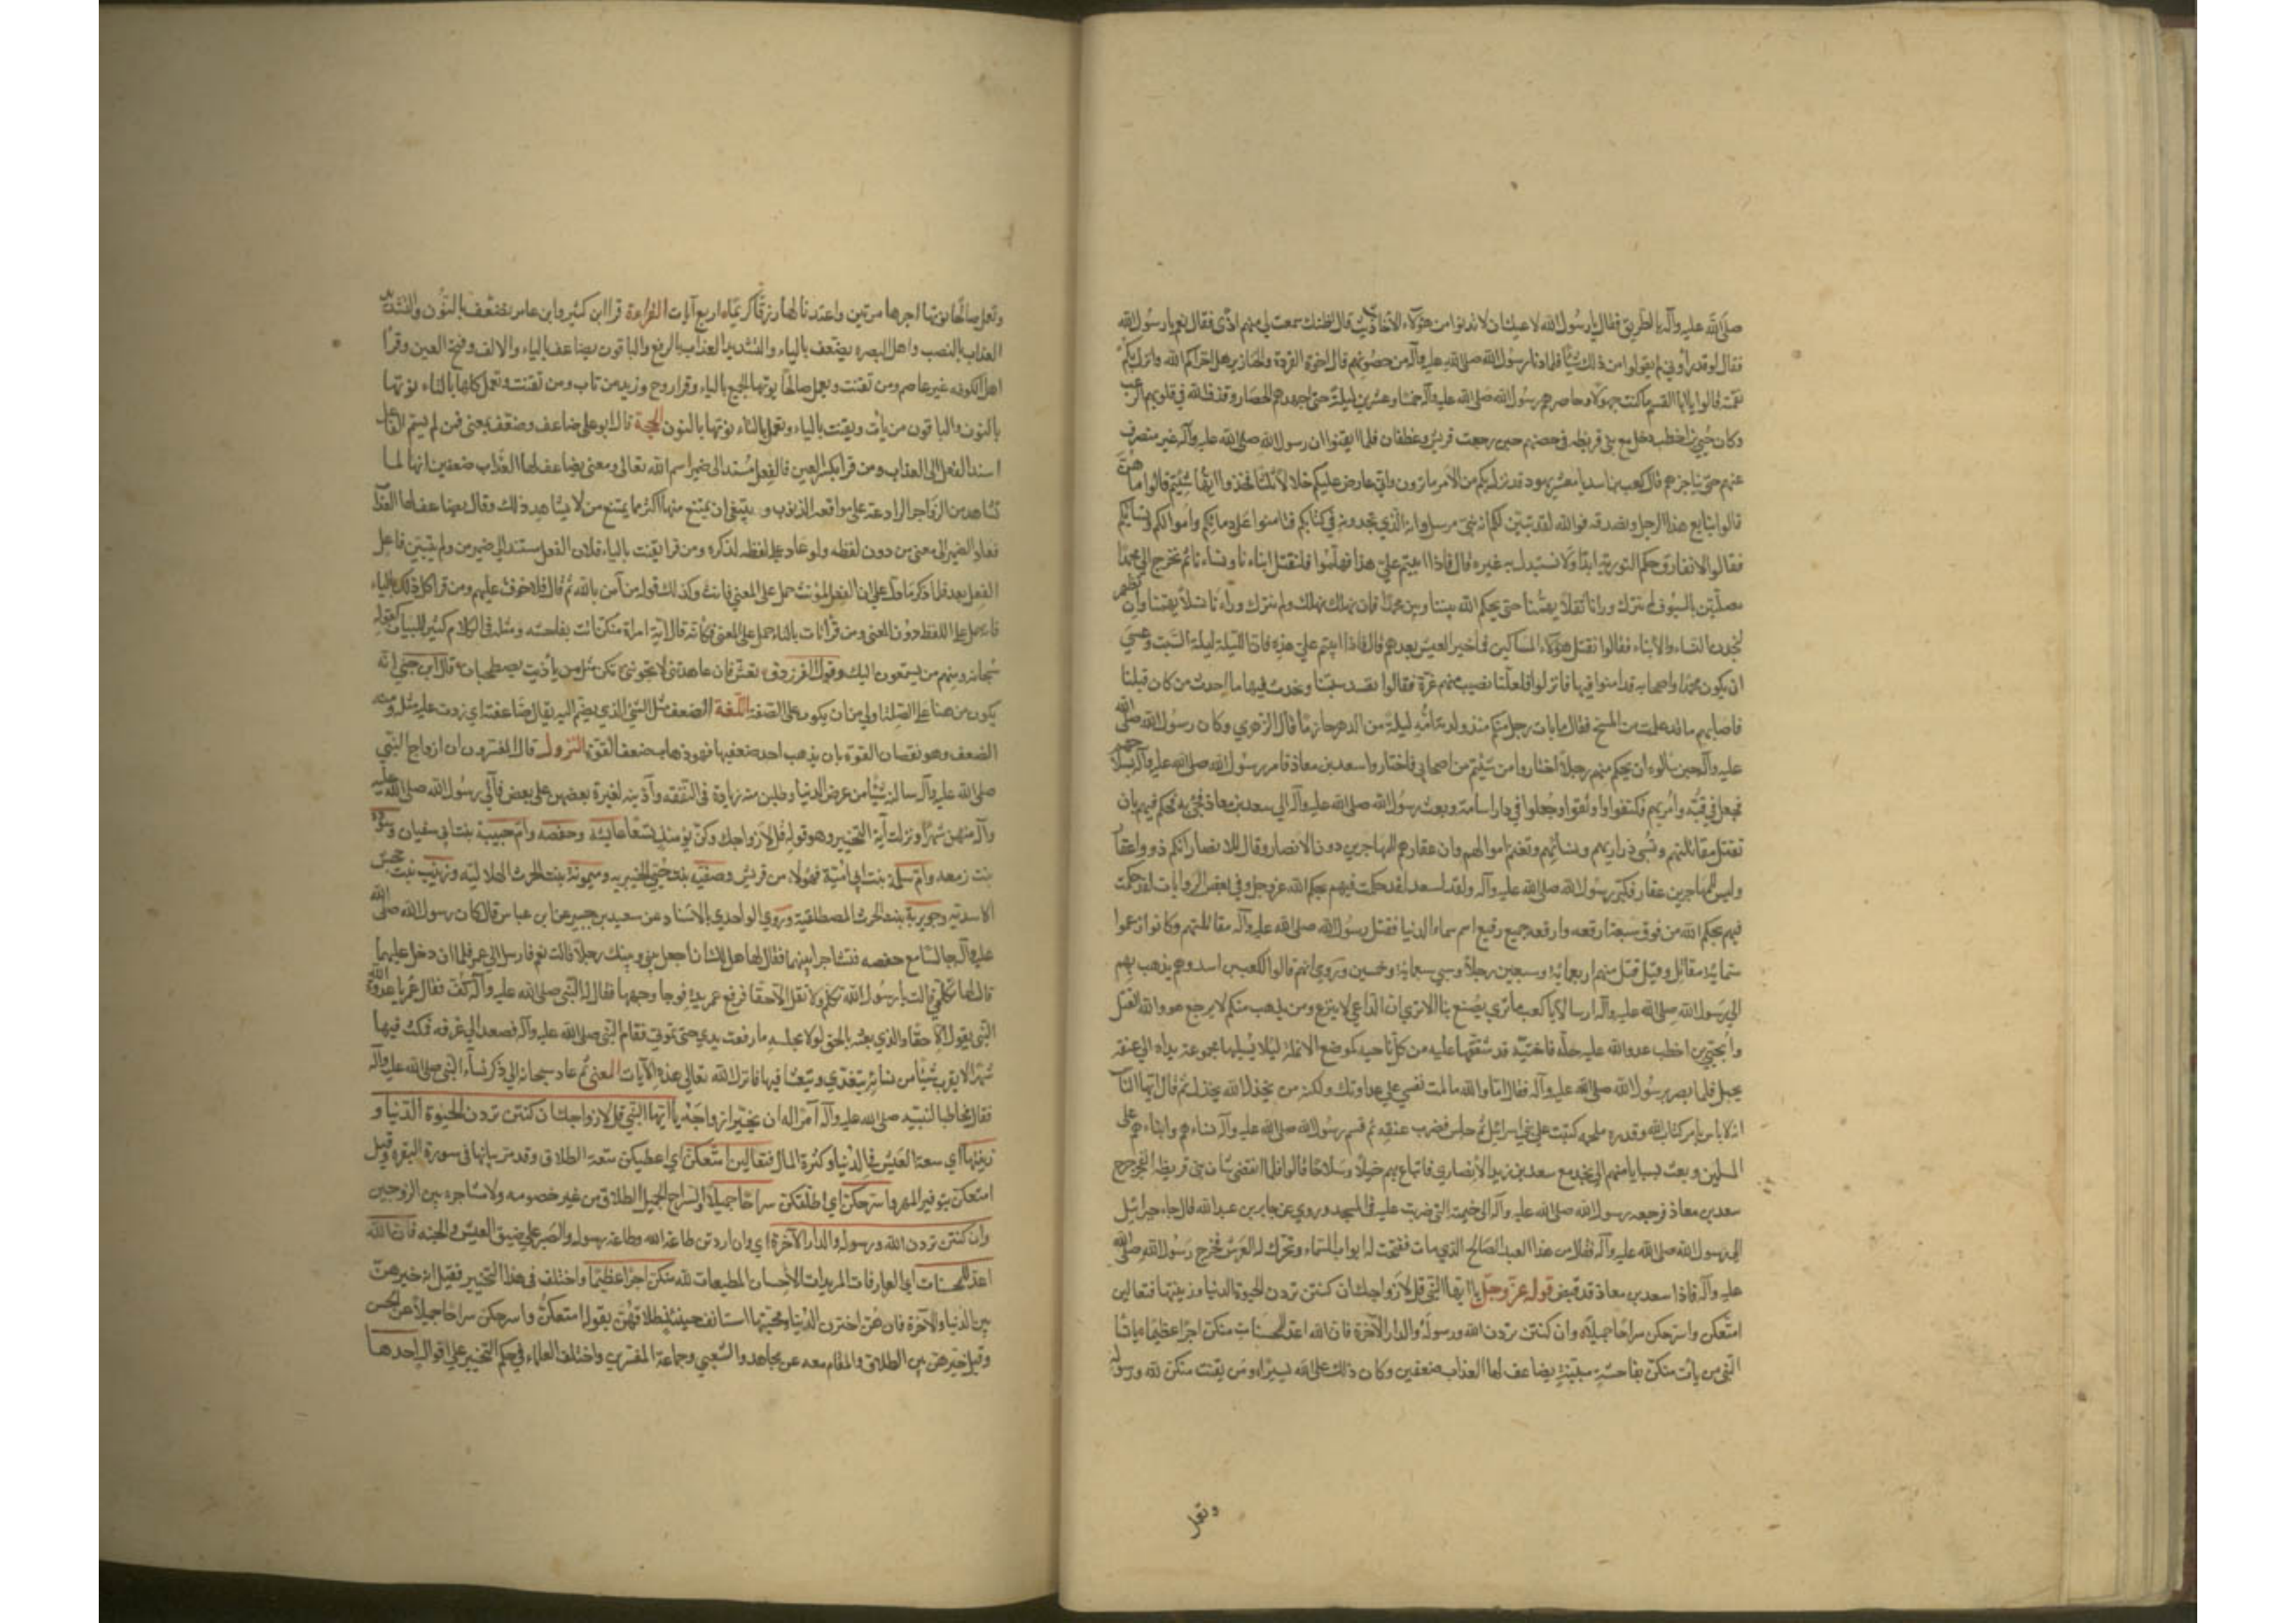 صلى الله عليه وآله بالطريق فقال يا رسول الله لا عليك ان لا تدنوا من هؤلاء الأخابيث قال اظنك سمعت لي منهم اذى فقال نعم يا رسول الله
فقال لو قد رأوني لم يقولوا من ذلك شيئا فلما دنا رسول الله صلى الله عليه وآله من حصونهم قال يا اخوة القردة والخنازير هل اخزاكم الله وانزل بكم
نقمته قالوا يا ابا القسم ما كنت جهولا وحاصرهم رسول الله صلى الله عليه وآله خمسا وعشرين ليلة حتى اجهدهم الحصار وقذف الله في قلوبهم الرعب
وكان حيي بن اخطب دخل مع بني قريظه في حصنهم حين رجعت قريش وغطفان فلما ايقنوا ان رسول الله صلى الله عليه وآله غير منصرف
عنهم حتى يناجزهم قال كعب بن اسد يا معشر يهود قد نزل بكم من الأمر ما ترون واني عارض عليكم خلالا ثلثا فخذوا ايها شئتم قالوا ما هن
قال نبايع هذا الرجل ونصدقه فوالله لقد تبين لكم انه نبي مرسل وانه الذي تجدونه في كتابكم فتامنوا على دمائكم واموالكم ونسائكم
فقالوا لا نفارق حكم التورية ابدا ولا نستبدل به غيره قال فاذا ابيتم علي هذا فهلموا فلنقتل ابناءنا ونساءنا ثم نخرج الى محمد
مصلتين بالسيوف لم نترك وراءنا ثقلا يهمنا حتى يحكم الله بيننا وبين محمد فان نهلك نهلك ولم نترك وراءنا نسلا يهمنا وان نظهر
لنجدن النساء والأبناء فقالوا نقتل هؤلاء المساكين فما خير العيش بعدهم قال فاذا ابيتم علي هذه فان الليلة ليلة السبت وعسى
ان يكون محمد واصحابه قد امنوا فيها فانزلوا فلعلنا نصيب منهم غرة فقالوا نفسد سبتنا ونحدث فيها ما احدث من كان قبلنا
فاصابهم ما قد علمت من المسخ فقال ما بات رجل منكم منذ ولدته امه ليلة من الدهر حازما قال الزهري وكان رسول الله صلى الله
عليه وآله حين سألوه ان يحكم فيهم رجلا اختاروا من شئتم من اصحابي فاختاروا سعد بن معاذ فامر رسول الله صلى الله عليه وآله بسلاحهم
فجعل في قبته وامر بهم فكتفوا واوثقوا وجعلوا في دار اسامة وبعث رسول الله صلى الله عليه وآله الى سعد بن معاذ فجيء به فحكم فيهم بان
تقتل مقاتلتهم وتسبى ذراريهم ونسائهم وتغنم اموالهم وان عقارهم للمهاجرين دون الانصار وقال للانصار انكم ذووا عقار
وليس للمهاجرين عقار فكبر رسول الله صلى الله عليه وآله وقال لسعد لقد حكمت فيهم بحكم الله عز وجل وفي بعض الروايات لقد حكمت
فيهم بحكم الله من فوق سبعة ارقعه وارقعه جميع رقيع اسم سماء الدنيا فقتل رسول الله صلى الله عليه وآله مقاتلتهم وكانوا زعموا
ستمائة مقاتل وقيل قتل منهم اربعمائة وسبعين رجلا وسبي سبعمائة وخمسين وروي انهم قالوا لكعب بن اسد وهو يذهب بهم
الى رسول الله صلى الله عليه وآله ارسالا يا كعب ما ترى يصنع بنا الا ترى ان الداعي لا ينزع ومن يذهب منكم لا يرجع هو والله القتل
واتي بحيي بن اخطب عدو الله عليه حلة فاختية قد شققها عليه من كل ناحيه كموضع الانملة ليلا يسلبها مجموعة يداه الى عنقه
بحبل فلما بصر برسول الله صلى الله عليه وآله فقال اما والله ما لمت نفسي على عداوتك ولكنه من يخذل الله يخذل ثم قال ايها الناس
انه لا باس بامر الله كتاب الله وقدره ملحمة كتبت على بني اسرائيل ثم جلس فضرب عنقه ثم قسم رسول الله صلى الله عليه وآله نساءهم وابناءهم على
المسلمين وبعث بسبايا منهم الى نجد مع سعد بن زيد الأنصاري فابتاع بهم خيلا وسلاحا قالوا فلما انقضى شان بني قريظه انفجر جرح
سعد بن معاذ فرجعه رسول الله صلى الله عليه وآله الى خيمته التي ضربت عليه في المسجد وروي عن جابر بن عبد الله قال جاء جبرائيل
الى رسول الله صلى الله عليه وآله فقال من هذا العبد الصالح الذي مات ففتحت له ابواب السماء وتحرك له العرش فخرج رسول الله صلى الله
عليه وآله فاذا سعد بن معاذ قد قبض قوله عز وجل يا ايها النبي قل لأزواجك ان كنتن تردن الحيوة الدنيا وزينتها فتعالين
امتعكن واسرحكن سراحا جميلا وان كنتن تردن الله ورسوله والدار الآخرة فان الله اعد للمحسنات منكن اجرا عظيما يا نساء
النبي من يأت منكن بفاحشة مبينة يضاعف لها العذاب ضعفين وكان ذلك على الله يسيرا ومن يقنت منكن لله ورسوله
وتعمل
وتعمل صالحا نوتها اجرها مرتين واعتدنا لها رزقا كريما اربع آيات القراءة قرأ ابن كثير وابن عامر نضعف بالنون والتشديد
العذاب بالنصب واهل البصره يضعف بالياء والتشديد العذاب بالرفع والباقون يضاعف بالياء والالف وفتح العين وقرأ
اهل الكوفه غير عاصم ومن يقنت ويعمل صالحا يوتها الجميع بالياء وقرأ روح وزيد من تات ومن تقنت وتعمل كلها بالتاء نوتها
بالنون والباقون من يأت ويقنت بالياء وتعمل بالتاء نوتها بالنون الحجة قال ابو علي ضاعف وضعف بمعنى فمن لم يسم الفاعل
اسند الفعل الى العذاب ومن قرا بكسر العين فالفعل مسند الى ضمير اسم الله تعالى ومعنى يضاعف لها العذاب ضعفين انها لما
تشاهد من الزواجر الرادعة على مواقعة الذنوب وينبغي ان يمتنع منها اكثر مما يمتنع من لا يشاهد ذلك وقال يضاعف لها العذاب
فعاد الضمير الى معنى من دون لفظه ولو عاد على لفظه لذكره ومن قرا يقنت بالياء فلان الفعل مسند الى ضمير من ولم يتبين فاعل
الفعل بعد فلما ذكر ما دل على ان الفعل لمؤنث حمل على المعنى فانث وكذلك قوله من آمن بالله ثم قال فلا خوف عليهم ومن قرا كل ذلك بالياء
فانه حمل على اللفظ دون المعنى ومن قرأ تات بالتاء حمل على المعنى فكأنه قال اية امراة منكن اتت بفاحشه ومثله في الكلام كثير للبيان كقوله
سبحانه ومنهم من يستمعون اليك وقول الفرزدق تعش فان عاهدتني لا تخونني نكن مثل من يا ذئب يصطحبان قال ابن جني انه
يكون من هنا على الصلة اولى من ان يكون على الصفة اللغة الضعف مثل الشيء الذي يضم اليه يقال ضاعفته اي زدت عليه مثله ومنه
الضعف وهو نقصان القوة بان يذهب احد ضعفيها فهو ذهاب ضعف القوة النزول قال المفسرون ان ازواج النبي
صلى الله عليه وآله سألنه شيئا من عرض الدنيا وطلبن منه زيادة في النفقه وآذينه لغيرة بعضهن على بعض فآلى رسول الله صلى الله عليه
وآله منهن شهرا ونزلت آية التخيير وهو قوله قل لأزواجك وكن يومئذ تسعا عايشة وحفصه وام حبيبة بنت ابي سفيان وسودة
بنت زمعه وام سلمة بنت ابي امية فهؤلاء من قريش وصفية بنت حيي الخيبريه وميمونة بنت الحرث الهلاليه وزينب بنت جحش
الاسديه وجويرية بنت الحرث المصطلقية وروي الواحدي بالاسناد عن سعيد بن جبير عن ابن عباس قال كان رسول الله صلى الله
عليه وآله جالسا مع حفصه فتشاجرا بينهما فقال لها هل لك ان اجعل بيني وبينك رجلا قالت نعم فارسل الى عمر فلما ان دخل عليهما
قال لها تكلمي قالت يا رسول الله تكلم ولا تقل الا حقا فرفع عمر يده فوجا وجهها فقال له النبي صلى الله عليه وآله كف فقال عمر يا عدوة الله
النبي لا يقول الا حقا والذي بعثه بالحق لولا مجلسه ما رفعت يدي حتى تموتي فقام النبي صلى الله عليه وآله فصعد الى غرفه فمكث فيها
شهرا لا يقرب شيئا من نسائه يتغدى ويتعشا فيها فانزل الله تعالى هذه الآيات المعنى ثم عاد سبحانه الى ذكر نساء النبي صلى الله عليه وآله
فقال مخاطبا لنبيه صلى الله عليه وآله آمرا له ان يخير ازواجه يا ايها النبي قل لازواجك ان كنتن تردن الحيوة الدنيا و
زينتها اي سعة العيش في الدنيا وكثرة المال فتعالين امتعكن اي اعطيكن متعة الطلاق وقد مر بيانها في سورة البقره وقيل
امتعكن بتوفير المهر واسرحكن اي اطلقكن سراحا جميلا والسراح الجميل الطلاق من غير خصومه ولا مشاجره بين الزوجين
وان كنتن تردن الله ورسوله والدار الآخرة اي وان اردتن طاعة الله وطاعة رسوله والصبر على ضيق العيش والجنه فان الله
اعد للمحسنات اي العارفات المريدات الاحسان المطيعات لله منكن اجرا عظيما واختلف في هذا التخيير فقيل انه خيرهن
بين الدنيا والآخرة فان هن اخترن الدنيا ومحبتها استانف حينئذ طلاقهن بقوله امتعكن واسرحكن سراحا جميلا عن الحسن
وقيل خيرهن بين الطلاق والمقام معه عن مجاهد والشعبي وجماعة المفسرين واختلف العلماء في حكم التخيير على اقوال احدها